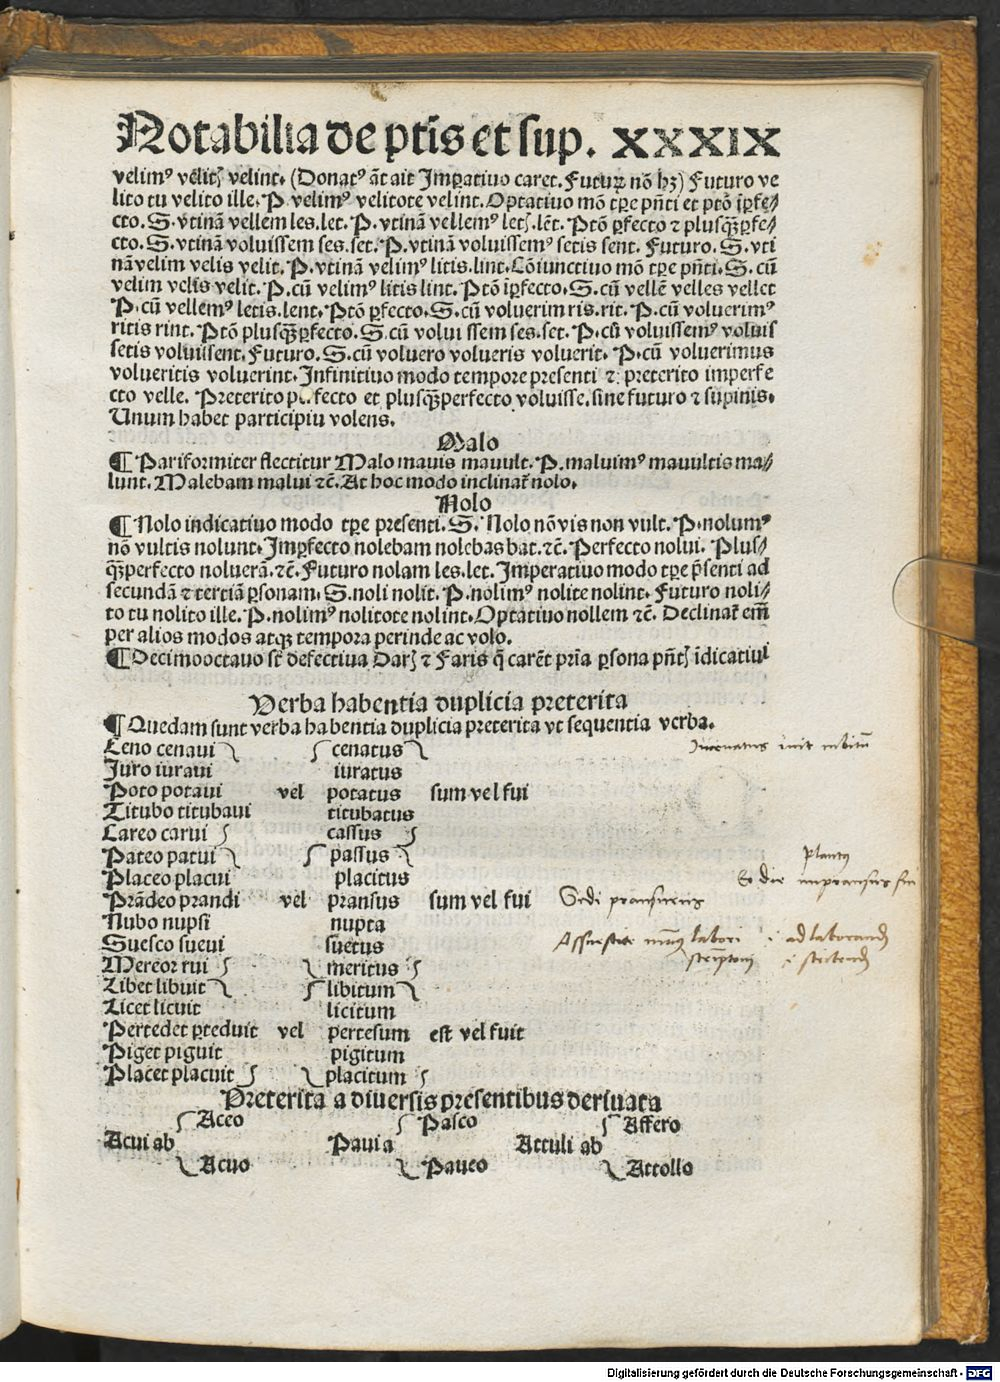 Notabilia de ptīs et sup. XXXIX
velimꝰ velitꝭ velint. (Donatꝰ āt ait Imꝑatiuo caret. Futuꝝ nō hꝫ) Futuro ve
lito tu velito ille. P. velimꝰ velitote velint. Optatiuo mō tꝑe pn̄ti et ptō iꝑfe⸗
cto. S. vtinā vellem les. let. P. vtinā vellemꝰ letꝭ. lēt. Ptō ꝑfecto ⁊ plusqꝫꝑfe⸗
cto. S. vtinā voluissem ses. set. P. vtinā voluissemꝰ setis sent. Futuro. S. vti
nā velim velis velit. P. vtinā velimꝰ litis. lint. Cōiunctiuo mō tꝑe pn̄ti. S. cū
velim velis velit. P. cū velimꝰ litis lint. Ptō iꝑfecto. S. cū vellē velles vellet
P. cū vellemꝰ letis. lent. Ptō ꝑfecto. S. cū voluerim ris. rit. P. cū voluerimꝰ
ritis rint. Ptō plusqꝫꝑfecto. S. cū volui ssem ses. set. P. cū voluissemꝰ voluis
setis voluissent. Futuro. S. cū voluero volueris voluerit. P. cū voluerimus
volueritis voluerint. Infinitiuo modo tempore presenti ⁊ preterito imperfe
cto velle. Preterito perfecto et plusqꝫperfecto voluisse. sine futuro ⁊ supinis.
Unum habet participiū volens.
Malo
¶ Pariformiter flectitur Malo mauis mauult. P. maluimꝰ mauultis ma⸗
lunt. Malebam malui ⁊c̄. At hoc modo inclinat̄ nolo.
Nolo
¶ Nolo indicatiuo modo tꝑe presenti. S. Nolo nō vis non vult. P. nolumꝰ
nō vultis nolunt. Imꝑfecto nolebam nolebas bat. ⁊c̄. Perfecto nolui. Plus⸗
qꝫperfecto noluerā. ⁊c̄. Futuro nolam les. let. Imperatiuo modo tꝑe p̄senti ad
secundā ⁊ tertiā ꝑsonam. S. noli nolit. P. nolimꝰ nolite nolint. Futuro noli⸗
to tu nolito ille. P. nolimꝰ nolitote nolint. Optatiuo nollem ⁊c̄. Declinat̄ em̄
per alios modos atqꝫ tempora perinde ac volo.
¶ Decimooctauo st̄ defectiua Darꝭ ⁊ Faris q̄ carēt prīa ꝑsona pn̄tꝭ īdicatiui
Verba habentia duplicia preterita
¶ Quedam sunt verba habentia duplicia preterita vt sequentia verba.
Ceno cenaui cenatus
Iuro iuraui iuratus
Poto potaui vel potatus sum vel fui
Titubo titubaui titubatus
Careo carui cassus
Pateo patui passus
Plautꝰ
Placeo placui placitus
Prādeo prandi vel pransus sum vel fui Sedi pransurus
Nubo nupsi nupta
Suesco sueui suetus
Mereor rui meritus
Libet libuit libitum
Licet licuit licitum
Pertedet ꝑteduit vel pertesum est vel fuit
Piget piguit pigitum
Placet placuit placitum
Preterita a diuersis presentibus deriuata
Aceo Pasco Affero
Acui ab Pauia Attuli ab
Acuo Paueo Attollo
Digitalisierung gefördert durch die Deutsche Forschungsgemeinschaft - DFG